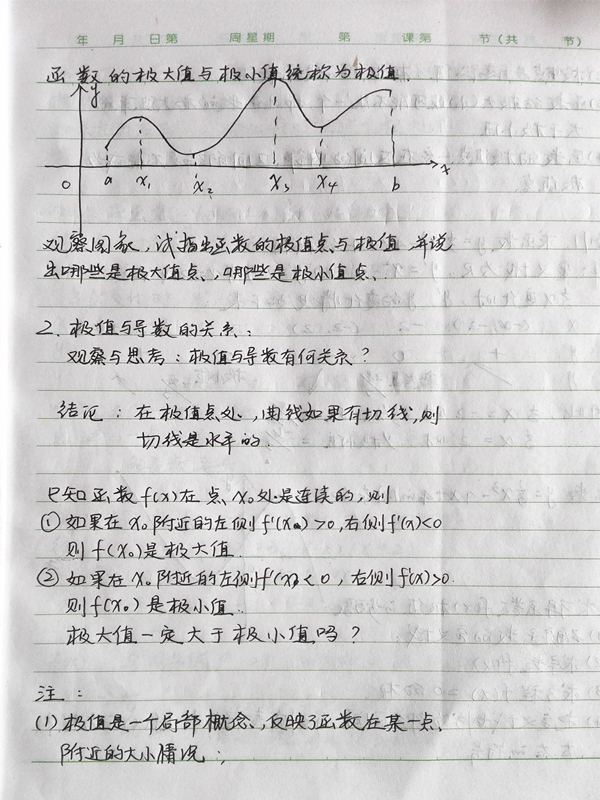 年 月 日第 周星期 第 课第 节(共 节)
函数的极大值与极小值统称为极值.
y
0 a x₁ x₂ x₃ x₄ b x
观察图象,试指出函数的极值点与极值,并说
出哪些是极大值点,哪些是极小值点.
2. 极值与导数的关系:
观察与思考:极值与导数有何关系?
结论:在极值点处,曲线如果有切线,则
切线是水平的.
已知函数f(x)在点x₀处是连续的,则
①如果在x₀附近的左侧f'(x)>0,右侧f'(x)<0
则f(x₀)是极大值.
②如果在x₀附近的左侧f'(x)<0,右侧f'(x)>0.
则f(x₀)是极小值.
极大值一定大于极小值吗?
注:
(1)极值是一个局部概念,反映了函数在某一点
附近的大小情况;